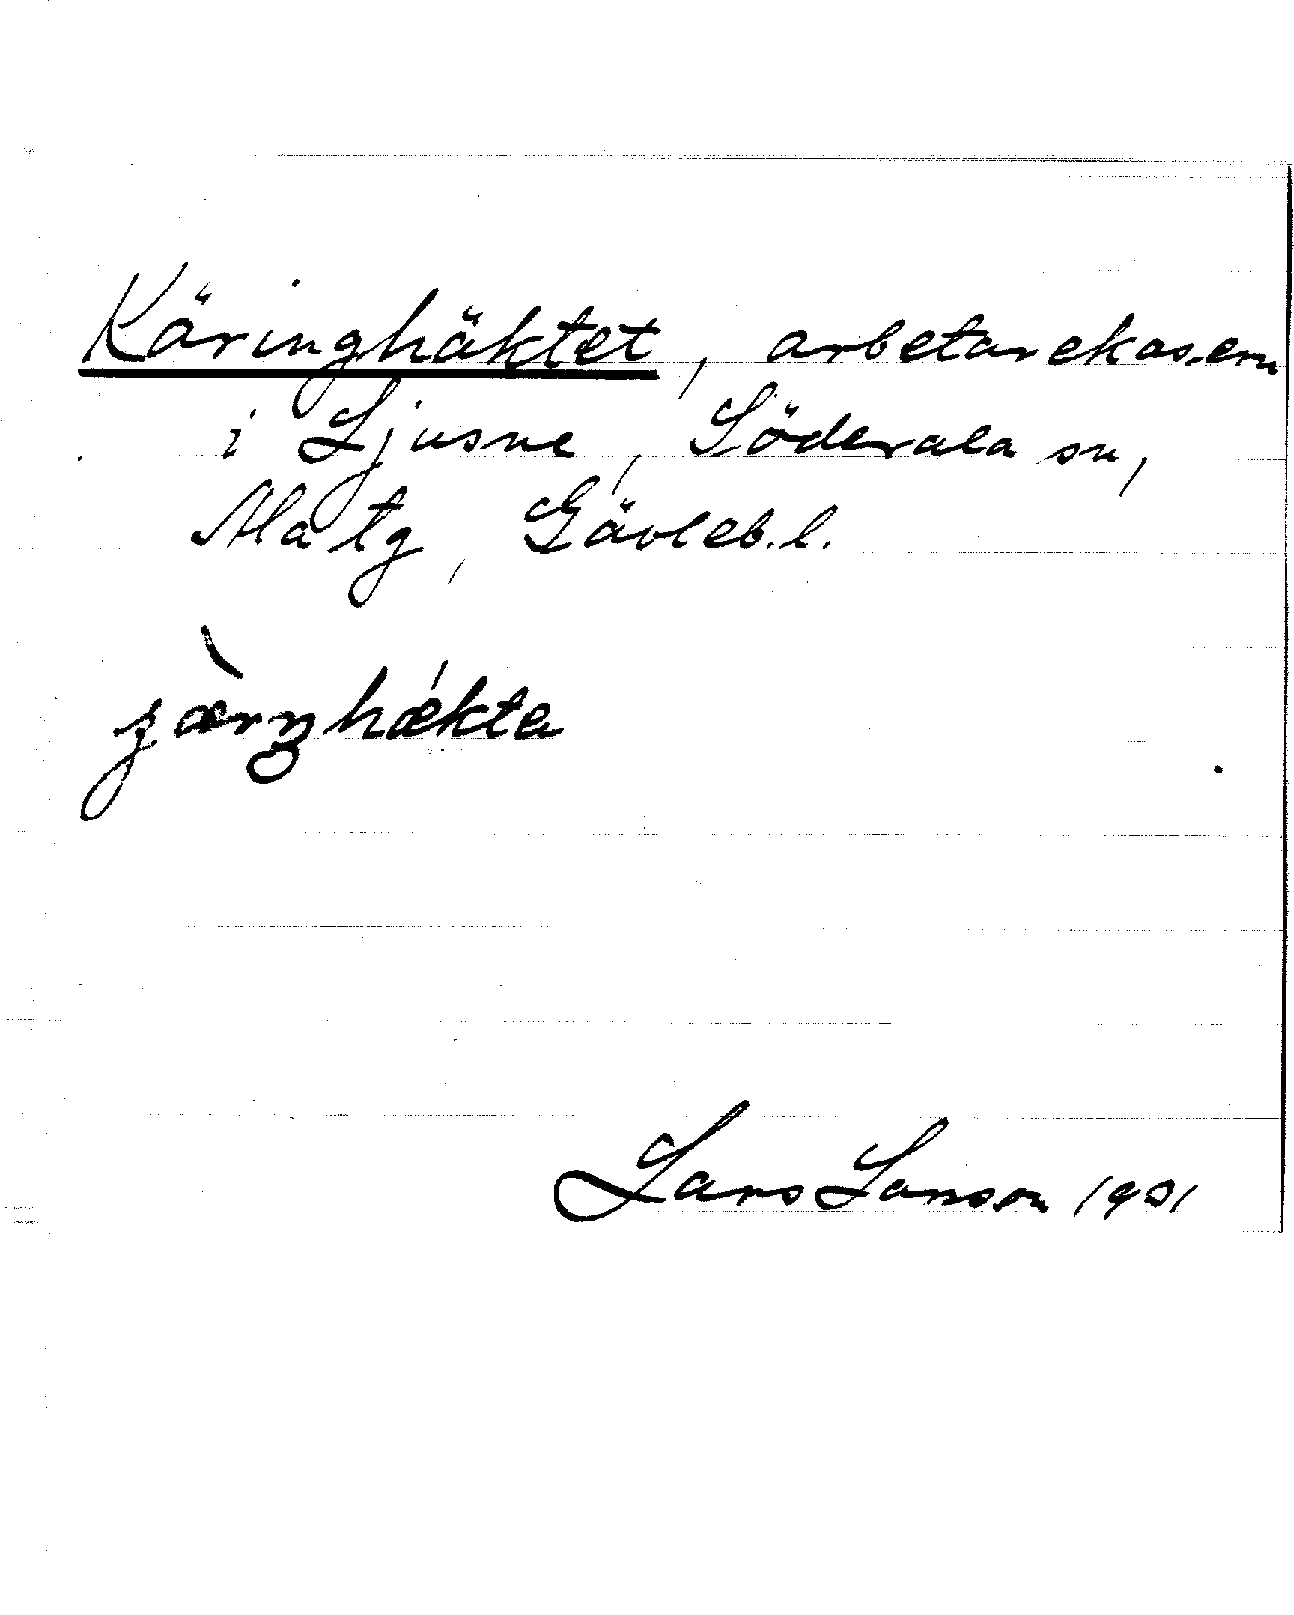 Käringhäktet, arbetarekasern
i Ljusne, Söderala sn,
Ala tg, Gävleb.l.
ʒæ̀rŋhǽktə
Lars Larsson 1901